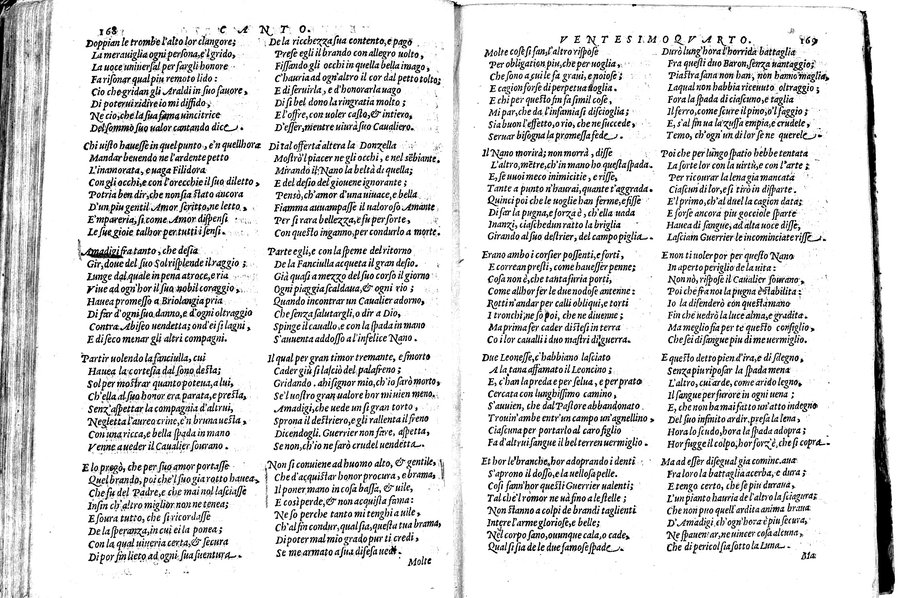 168 CANTO.
Doppian le trombe l'alto lor clangore;
La meraviglia ogni persona, e'l grido,
La uoce uniuersal per sargli honore
Fa risonar qual piu remoto lido:
Cio che gridan gli Araldi in suo fauore,
Di poter ui ridire io mi diffido,
Ne cio, che la sua fama uincitrice
Del sommo suo ualor cantando dice.
Chi uisto hauesse in quel punto, e'n quell'hora
Mandar beuendo ne l'ardente petto
L'inamorata, e uaga Filidora
Con gli occhi, e con l'orecchie il suo diletto,
Potria ben dir, che non sia stato ancora
D'un piu gentil Amor scritto, ne letto,
E'mpareria, si come Amor dispensi
Le sue gioie talhor per tutti i sensi.
Amadigi fra tanto, che desia
Gir, doue del suo Sol risplende il raggio;
Lunge dal quale in pena atroce, e ria
Viue ad ogn'hor il suo nobil coraggio,
Hauea promesso a Briolangia pria
Di far d'ogni suo danno, e d'ogni oltraggio
Contra Abiseo uendetta; ond'ei si lagni,
E di seco menar gli altri compagni.
Partir uolendo la fanciulla, cui
Hauea la cortesia dal sono desta;
Sol per mostrar quanto potena, a lui,
Ch'ella al suo honor era parata, e presta,
Senz'aspettar la compagnia d'altrui,
Negletta l'aureo crine, e'n bruna uesta,
Con una ricca, e bella spada in mano
Venne a ueder il Caualier sourano.
E lo pregò, che per suo amor portasse
Quel brando, poi che'l suo gia rotto hauea,
Che fu del Padre, e che mai nol lasciasse
Insin ch'altro miglior non ne tenea;
E soura tutto, che si ricordasse
De la speranza, in cui ei la ponea;
Con la qual uiueria certa, & secura
Di por fin lieto ad ogni sua suentura.
De la ricchezza sua contento, e pago
Prese egli il brando con allegro uolto,
Fissando gli occhi in quella bella imago,
C'hauria ad ogn'altro il cor dal petto tolto;
E di seruirla, e d'honorarla uago
Di sì bel dono la ringratia molto;
E l'offre, con uoler casto, & intiero,
D'esser, mentre uiurà suo Caualiero.
Di tal offerta altera la Donzella
Mostrò'l piacer ne gli occhi, e nel sēbiante.
Mirando il Nano la beltà di quella;
E del desio del giouene ignorante;
Pensò, ch'amor d'una uiuace, e bella
Fiamma auuampasse il ualoroso Amante
Per sì rara bellezza, e fu per sorte,
Con questo inganno, per condurlo a morte.
Parte egli, e con la speme del ritorno
De la Fanciulla acqueta il gran desio.
Già quasi a mezzo del suo corso il giorno
Ogni piaggia scaldaua, & ogni rio;
Quando incontrar un Caualier adorno,
Che senza salutargli, o dir a Dio,
Spinge il cauallo, e con la spada in mano
S'auuenta addosso a l'infelice Nano.
Il qual per gran timor tremante, e smorto
Cader giù si lasciò del palafreno;
Gridando. ahi signor mio, ch'io sarò morto,
Se'l uostro gran ualore hor mi uien meno.
Amadigi, che uede un sì gran torto,
Sprona il destriero, e gli rallenta il freno
Dicendogli. Guerrier non fare, aspetta,
Se non, ch'io ne farò crudel uendetta.
Non si conuiene ad huomo alto, & gentile,
Che d'acquistar honor procura, e brama,
Il poner mano in cosa bassa, & uile,
E così perde, & non acquista fama:
Ne so perche tanto mi tenghi a uile,
Ch'al fin condur, qual sia, questa tua brama,
Di poter mal mio grado pur ti credi,
Se me armato a sua difesa uedi.
Molte
VENTESIMOQVARTO. 169
Molte cose si fan, l'altro rispose
Per obligation piu, che per uoglia,
Che sono a cui le fa graui, e noiose;
E cagion forse di perpetua doglia.
E chi per questo fin fa simil cose,
Mi par, che da l'infamia si discioglia;
Sia buon l'effetto, o rio, che ne succede,
Seruar bisogna la promessa fede.
Il Nano morirà; non morrà, disse
L'altro, mētre, ch'in mano ho questa spada.
E, se uuoi meco inimicitie, e risse,
Tante a punto n'haurai, quante t'aggrada.
Quinci poi che le uoglie han ferme, e fisse
Di far la pugna, e forz'è, ch'ella uada
Inanzi, ciaschedun ratto la briglia
Girando al suo destrier, del campo piglia.
Erano ambo i corsier possenti, e forti,
E correan presti, come hauesser penne;
Cosa non è, che tanta furia porti,
Come allhor fer le due nodose antenne:
Rotti n'andar per calli obliqui, e torti
I tronchi, ne so poi, che ne diuenne;
Ma prima fer cader distesi in terra
Co i lor caualli i duo mastri di guerra.
Due Leonesse, c'habbiano lasciato
A la tana affamato il Leoncino;
E, c'han la preda e per selua, e per prato
Cercata con lunghissimo camino,
S'auuien, che dal Pastore abbandonato
Trouin'ambe entr'un campo un'agnellino,
Ciascuna per portarlo al caro figlio
Fa d'altrui sangue il bel terren uermiglio.
Et hor le branche, hor adoprando i denti
S'aprono il dosso, e la nellosa pelle.
Così fann'hor questi Guerrier ualenti;
Tal che'l romor ne uà fino a le stelle;
Non stanno a colpi de brandi taglienti
Intere l'arme gloriose, e belle;
Nel corpo sano, ounnque cala, o cade,
Qual si sia de le due famose spade.
Durò lung'hora l'horrida battaglia
Fra questi duo Baron, senza uantaggio;
Piastra sana non han, non hanno maglia,
La qual non habbia riceuuto oltraggio;
Fora la spada di ciascuno, e taglia
Il ferro, come scure il pino, o'l faggio;
E, s'al fin ua la zuffa empia, e crudele,
Temo, ch'ogn'un di lor se ne querele.
Poi che per lungo spatio hebbe tentata
La sorte lor con la uirtù, e con l'arte;
Per ricourar la lena gia mancata
Ciascun di lor, e si tirò in disparte.
E'l primo, ch'al duel la cagion data;
E forse ancora piu gocciole sparte
Hauea di sangue, ad alta uoce disse,
Lasciam Guerrier le incominciate risse.
E non ti uoler por per questo Nano
In aperto periglio de la uita:
Non nò, rispose il Caualier sourano,
Poi che fra noi la pugna è stabilita:
Io la difenderò con questa mano
Fin che uedrò la luce alma, e gradita.
Ma meglio fia per te questo consiglio,
Che sei di sangue piu di me uermiglio.
E questo detto pien d'ira, e di sdegno,
Senza piu riposar la spada mena
L'altro, cui arde, come arido legno,
Il sangue per furore in ogni uena;
E, che non ha mai fatto un'atto indegno
Del suo infinito ardir, presa la lena,
Hora lo scudo, hora la spada adopra;
Hor fugge il colpo, hor forz'è, che si copra.
Ma ad esser disegual gia cominciaua
Fra loro la battaglia acerba, e dura;
E tengo certo, che se piu duraua,
L'un pianto hauria de l'altro la sciagura;
Che non può quell'ardita anima braua
D'Amadigi, ch'ogn'hora è piu secura,
Ne spauentar, ne uincer cosa alcuna,
Che di pericol sia sotto la Luna.
Ma